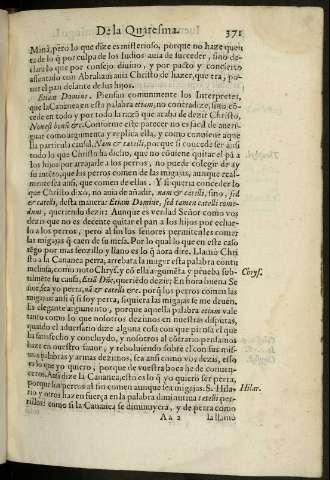 De la Quaresma. 371
Maná, pero lo que dize es misterioso, porque no haze quen
ta de lo q̃ por culpa de los Iudios auia de suceder, sino de-
clara lo que por consejo diuino, y por pacto y concierto
assentado con Abraham auia Christo de hazer, que era, po-
ner el pan delante de sus hijos.
Etiam Domine. Piensan comunmente los Interpretes,
que la Cananea en esta palabra etiam, no contradize, sino cõ-
cede en todo y por todo la razõ que acaba de dezir Christo,
Non est bonũ &c. Conforme este parecer no es facil de aueri-
guar como argumenta y replica ella, y como conuiene aqui
la particula causal. Nam & catelli, porque si concede ser assi
todo lo que Christo ha dicho, que no conuiene quitar el pã a
los hijos por arrojarle a los perros, no puede colegir de ay
su intẽto, que los perros comen de las migajas, aunque real-
mente sea assi, que comen dellas. Y si queria conceder lo
que Christo dixo, no auia de añadir, nam & catelli, sino, sed
& catelli, desta manera: Etiam Domine, sed tamen catelli come-
dunt, queriendo dezir: Aunque es verdad Señor como vos
dezis que no es decente quitar el pan a los hijos por echar-
lo a los perros, pero al fin señores permitenles comer
las migajas q̃ caen de su mesa. Por lo qual lo que en este caso
tẽgo por mas senzillo y llano es lo q̃ aora dire. Llamò Chri
sto a la Cananea perra, arrebata la muger esta palabra contu
meliosa, como noto Chrys. y cõ ella argumẽta y prueba sub- Chrys.
tilmẽte su causa, Etiã Dñe, queriẽdo dezir: En hora buena Se
ñor, sea yo perra, nã & catelli &c. porq̃ los perros comen las
migajas ansi q̃ si soy perra, siquiera las migajas se me deuen.
Es elegante argumento, porque aquella palabra etiam vale
tanto como lo que nosotros dezimos en nuestras disputas,
quando el aduersario dize alguna cosa con que piensa el que
ha satisfecho y concluydo, y nosotros al cõtrario pensamos
haze en nuestro fauor, y reboluiendo sobre el con sus mis-
mas palabras y armas dezimos, sea ansi como vos dezis, esso
es lo que yo quiero, porque de vuestra boca he de conuen-
ceros. Ansi dize la Cananea, esto es lo q̃ yo quiero ser perra,
porque los perros al fin comen aunque sea migajas. S. Hila- Hilar.
rio, y otros hazen fuerça en la palabra diminutiua catelli per-
rillos: como si la Cananea se diminuyera, y de perra como
Aa 2 la llamò